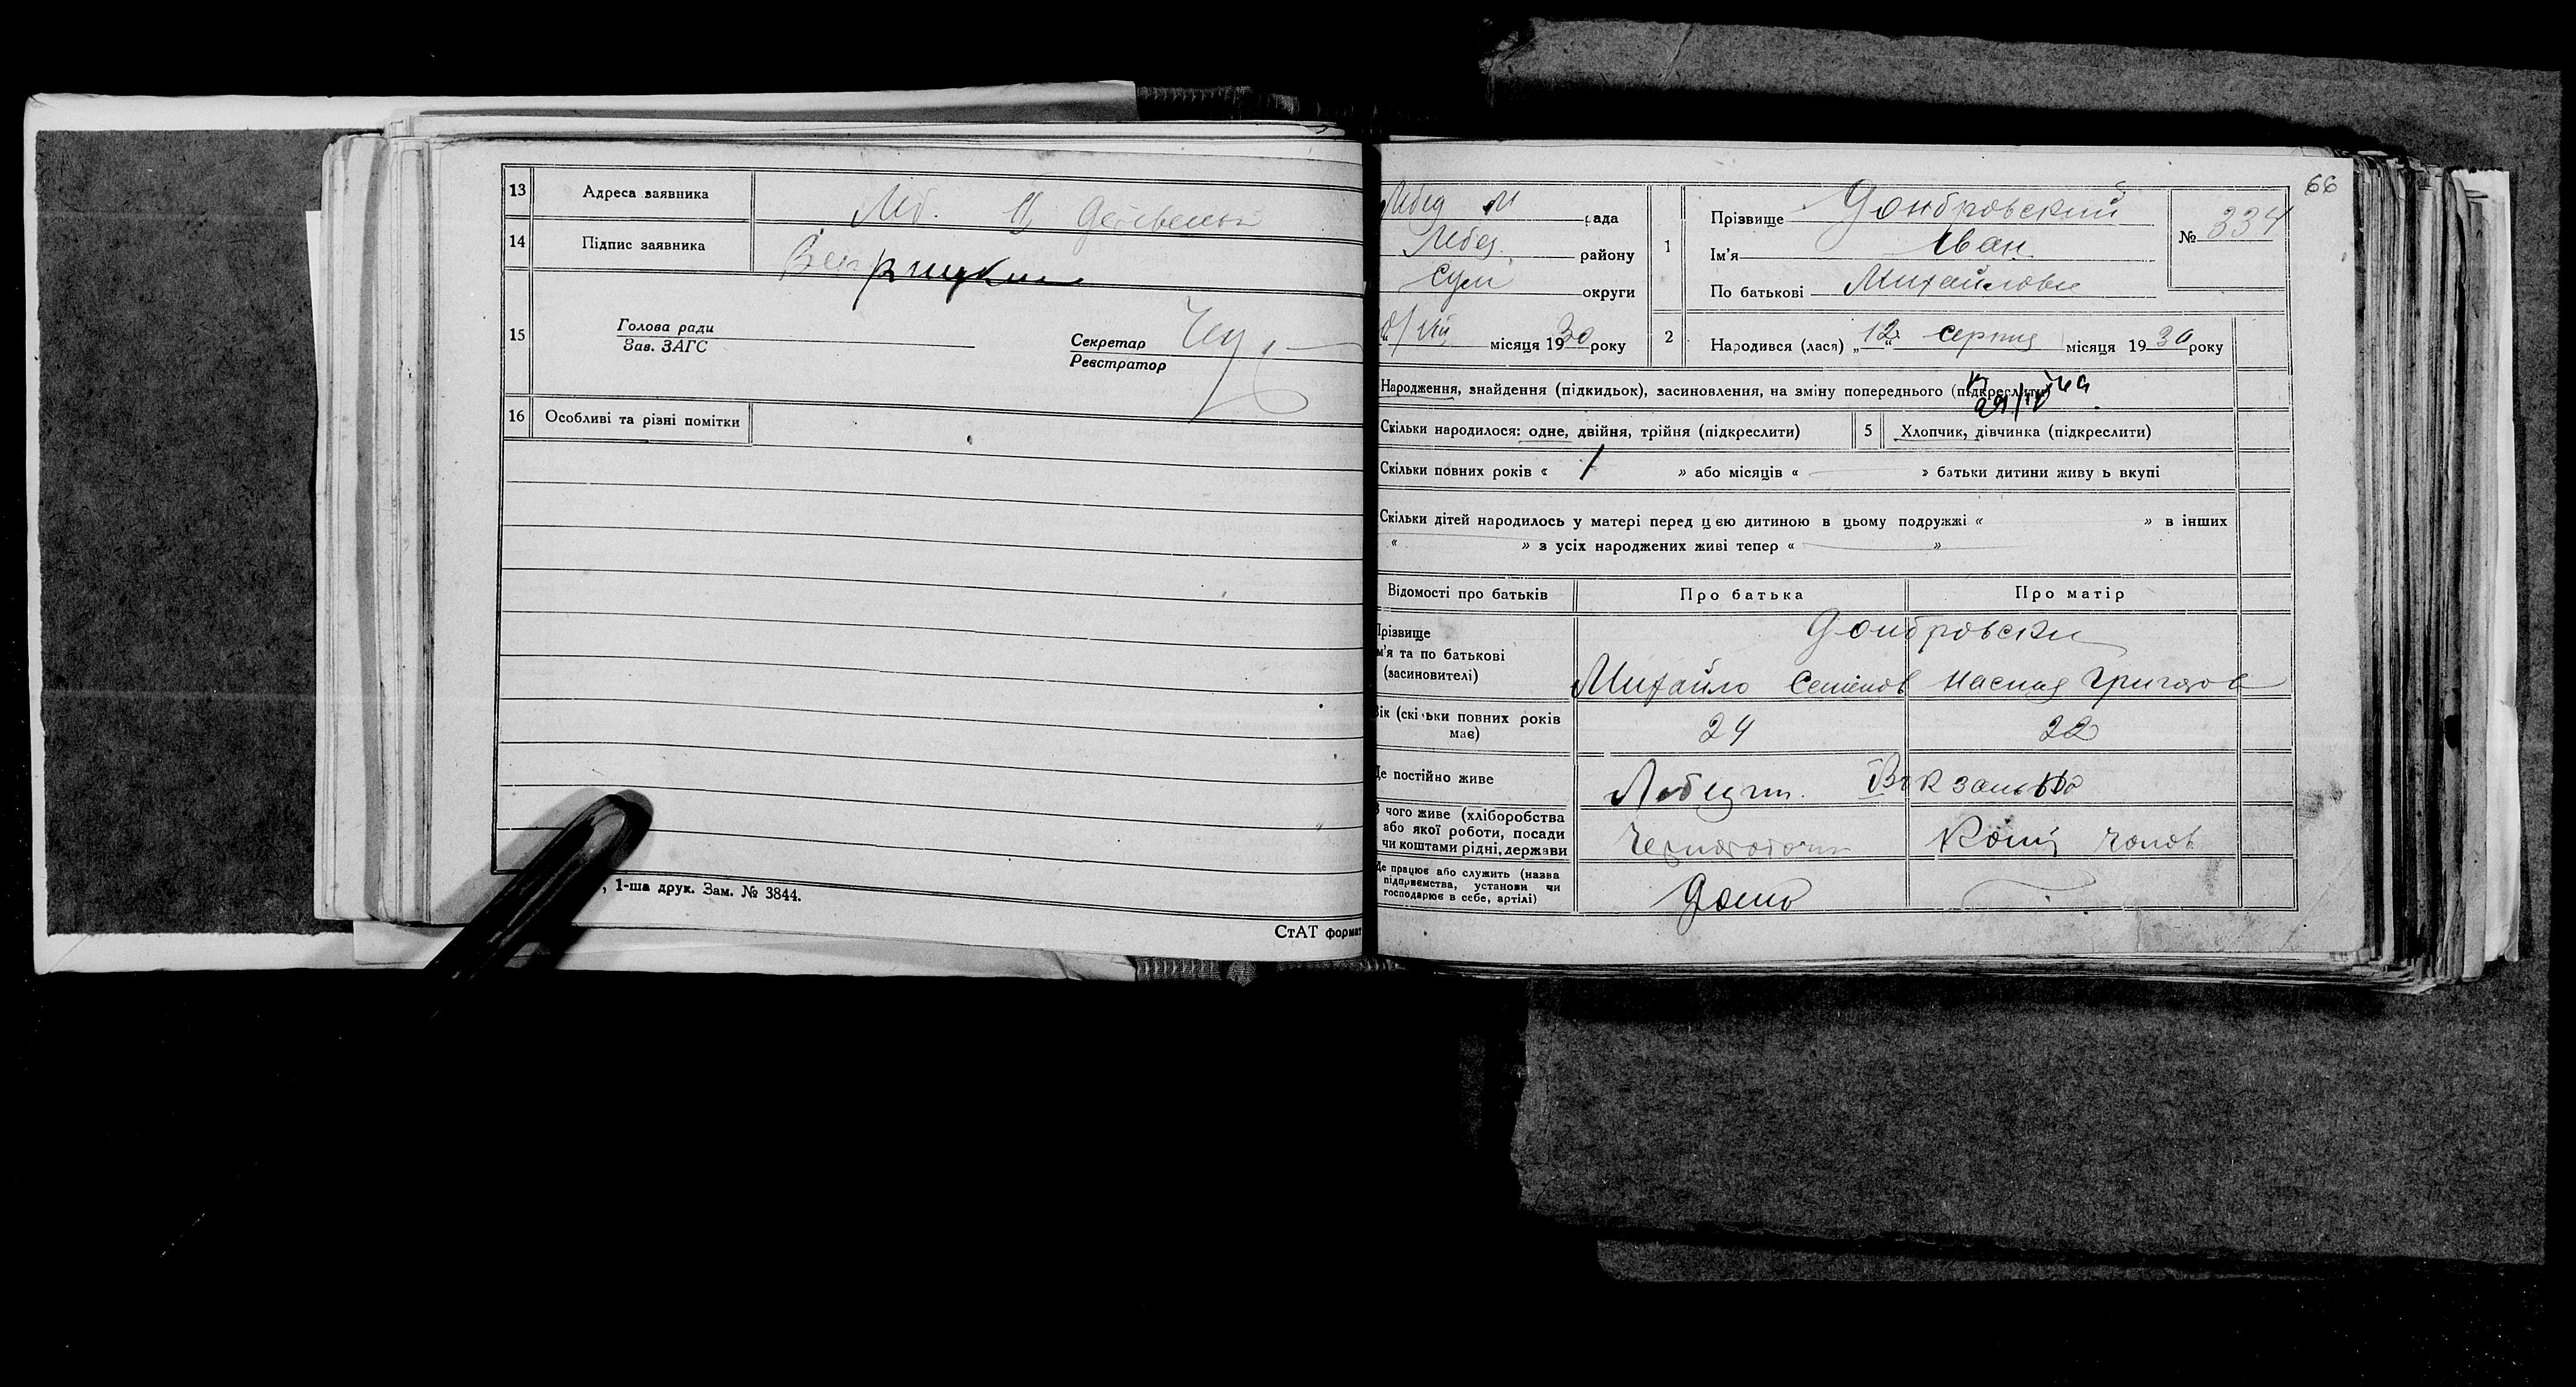 13 Адреса заявника Леб.
14 Підпис заявника
15 Голова ради
Зав. ЗАГС
Секретар
Реєстратор
16 Особливі та різні помітки
, 1-ша друк. Зам. № 3844.
СтАТ формат
66
Лебед М рада
Лебед. району
Сум округи
VIII місяця 1930 року
1 Прізвище Домбровский
Ім'я Іван
По батькові Михайлович
№ 334
2 Народився (лася) „12" серпня місяця 1930 року
Народження, знайдення (підкидьок), засиновлення, на зміну попереднього (підкреслити)
Скільки народилося: одне, двійня, трійня (підкреслити)
5 Хлопчик, дівчинка (підкреслити)
Скільки повних років « 1 » або місяців « — » батьки дитини живу ь вкупі
Скільки дітей народилось у матері перед цією дитиною в цьому подружжі « » в інших
« » з усіх народжених живі тепер « — »
Відомості про батьків Про батька Про матір
Прізвище Домбровски
м'я та по батькові
(засиновителі) Михайло Семенов Настя Григоров
Вік (скільки повних років має) 24 22
Де постійно живе
З чого живе (хліборобства
або якої роботи, посади
чи коштами рідні, держави Чорнороботч Кошт чолов
Де працює або служить (назва
підприємства, установи чи
господарює в себе, артілі) Дома —